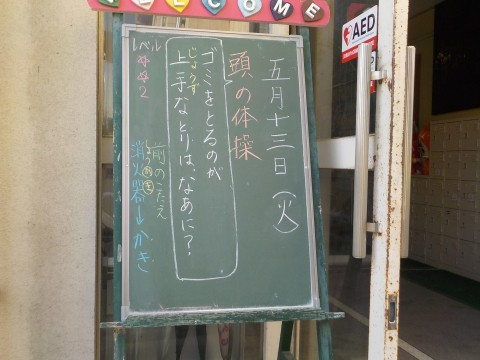 WELCOME
AED
五月十三日(火)
頭の体操
ゴミをとるのが
じょうず
上手なとりは、なあに?
レベル
☆☆2
前のこたえ
しょうかき
消火器→かぎ